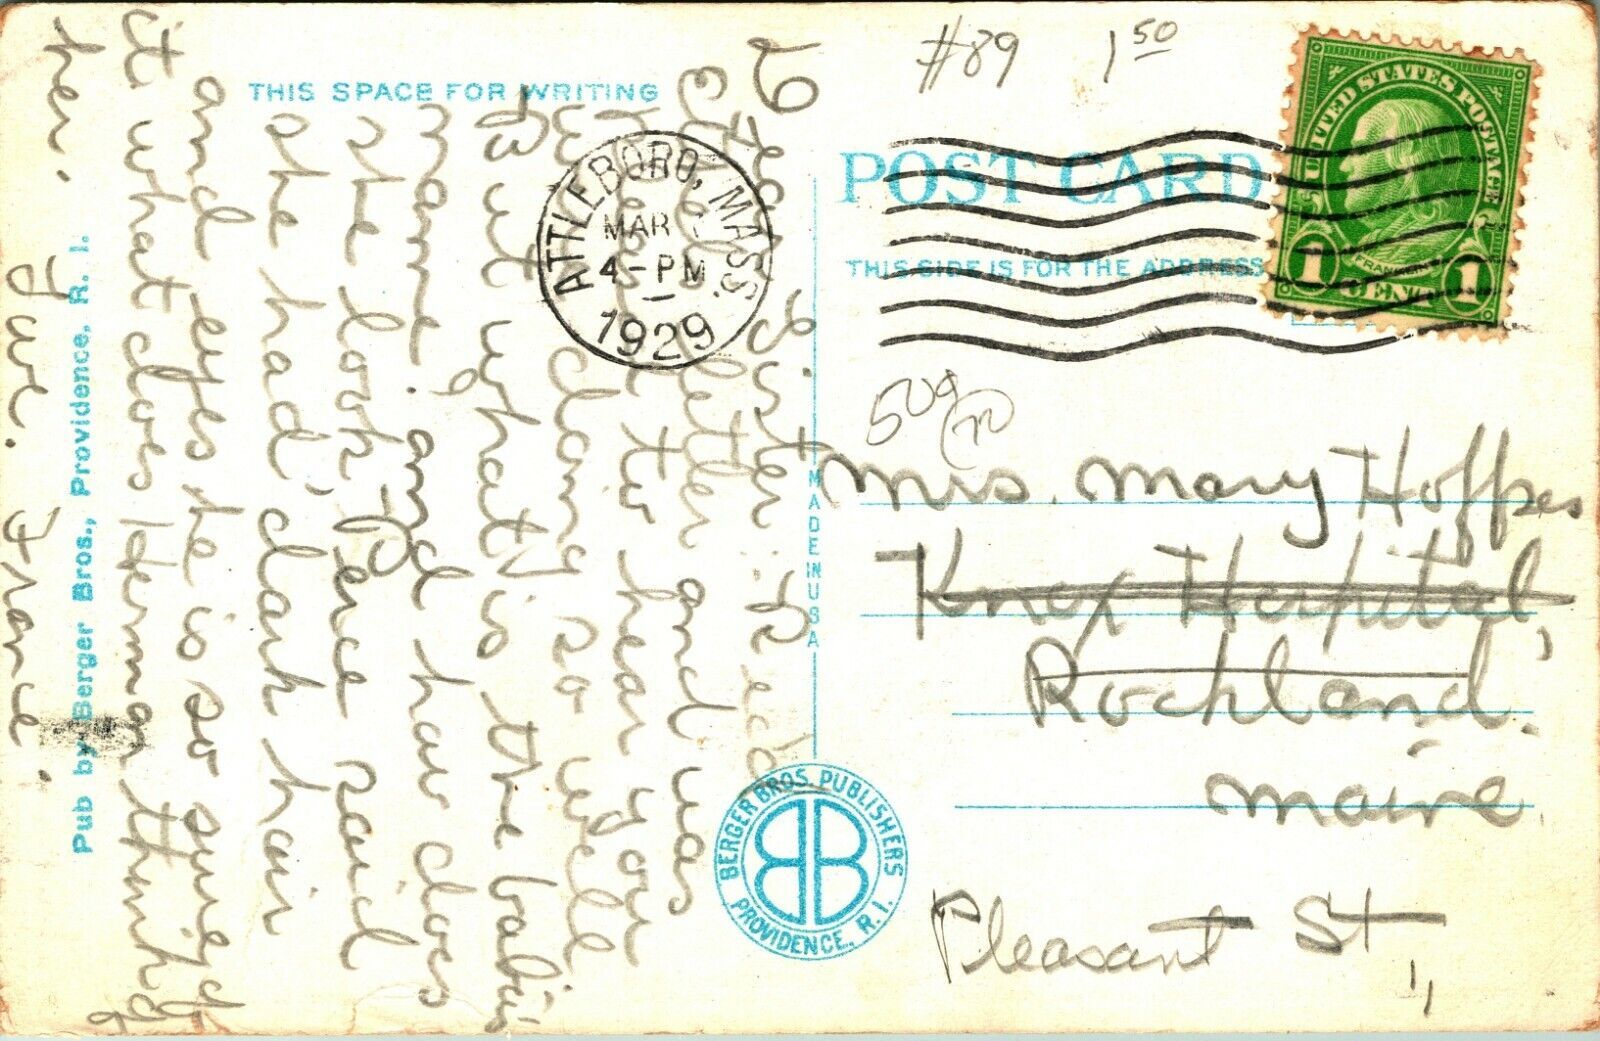 THIS SPACE FOR WRITING
29
Dear Sister: Rec'd
letter and was
to hear you
doing so well
But what is the babie's
name. and how does
she look. Pence said
she had dark hair
and eyes he is so smiled
it what does Herman think of
her.
Your. Franie.
Pub by Berger Bros., Providence, R. I.
ATTLEBORO, MASS.
MAR
4-PM
1929
#89 1 50
UNITED STATES POSTAGE
FRANKLIN
1 CENT 1
POST CARD
THIS SIDE IS FOR THE ADDRESS
MADE IN USA
Mrs. Mary Hoffses
Knox Hospital,
Rockland.
Maine
Pleasant St,
BERGER BROS. PUBLISHERS
BB
PROVIDENCE, R. I.